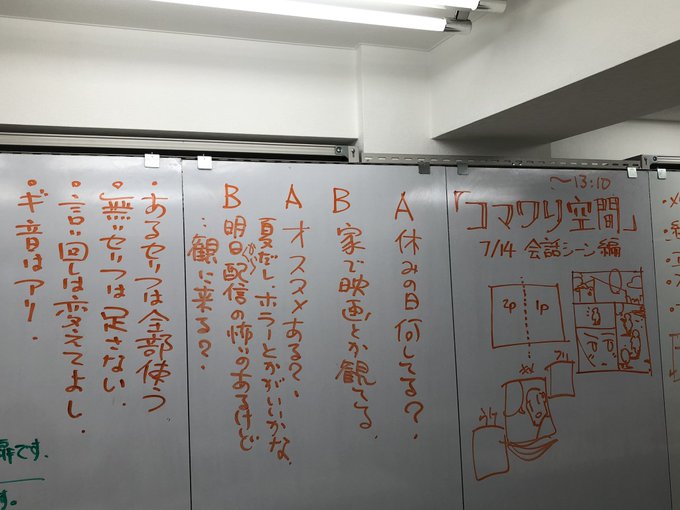 ～13:10
「コマワリ空間」
7/14 会話シーン編
2p
1p
A 休みの日何してる？、
B 家で映画とか観てる、
A オススメある？、
夏だし、ホラーとかがいいかな、
B 明日、配信の怖いのあるけど
観に来る？、
・あるセリフは全部使う
・無いセリフは足さない
・言い回しは変えてよし、
・ギ音はアリ、
です、
す。